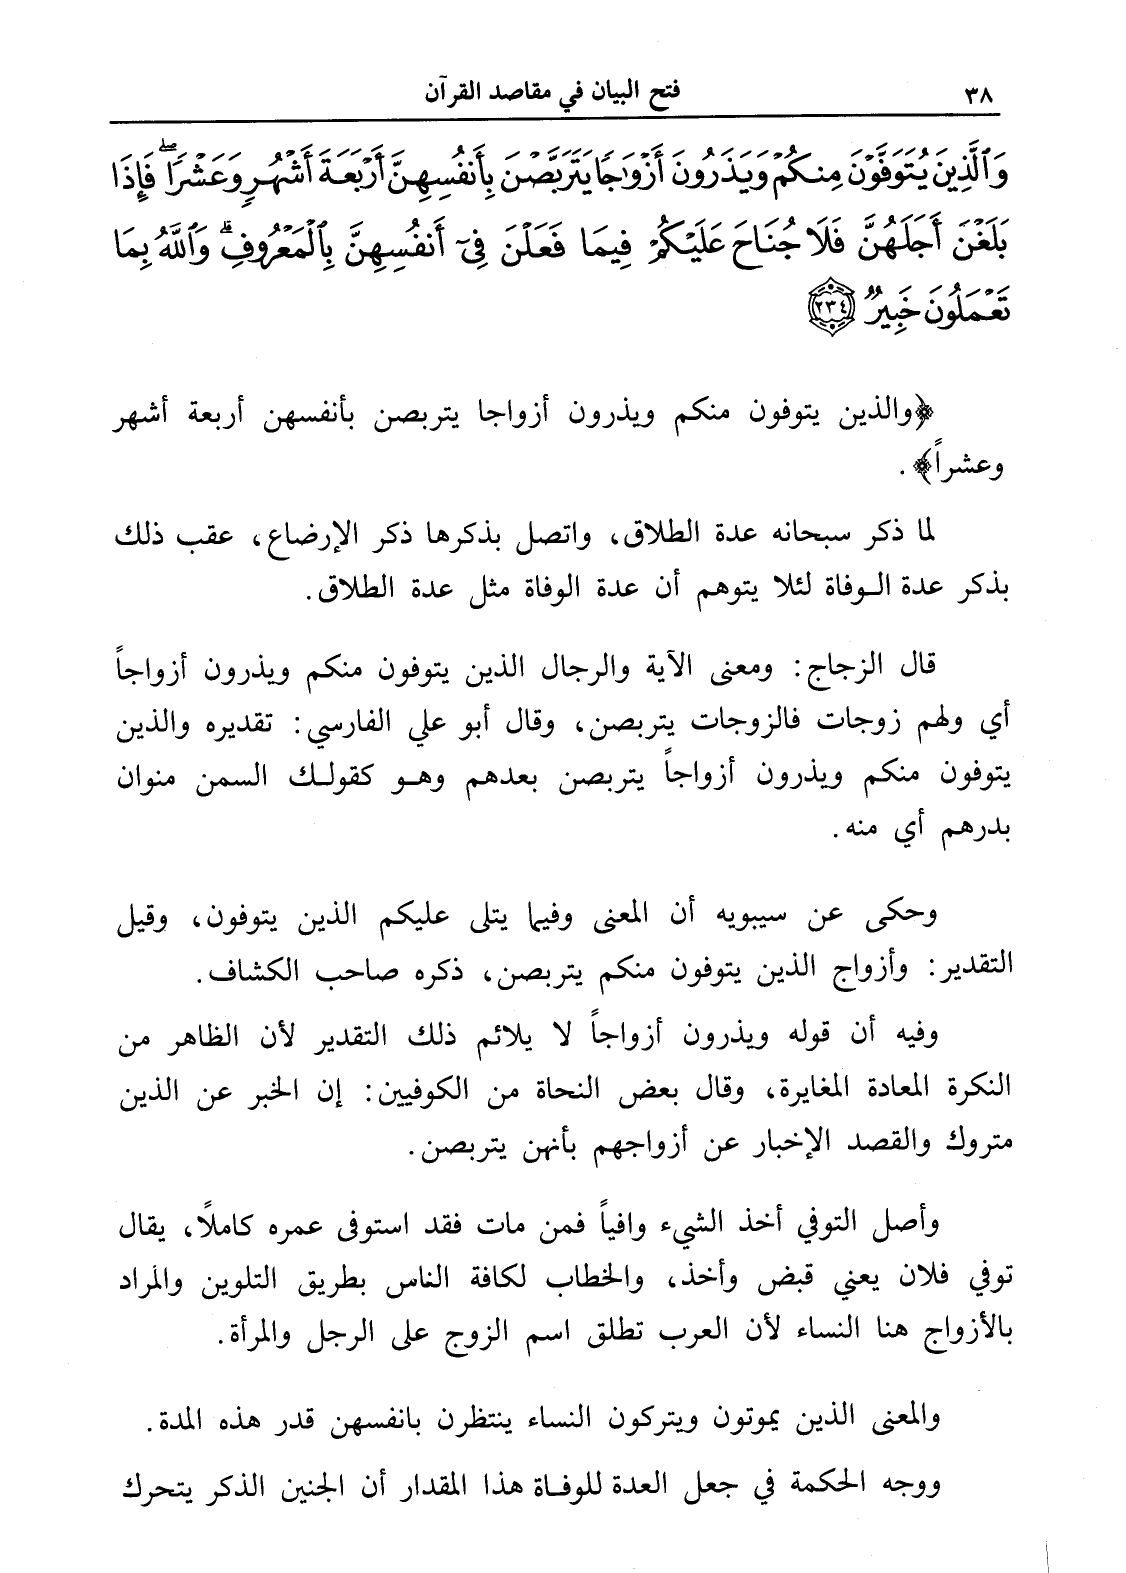 ٣٨ فتح البيان في مقاصد القرآن
وَٱلَّذِينَ يُتَوَفَّوْنَ مِنكُمْ وَيَذَرُونَ أَزْوَٰجًا يَتَرَبَّصْنَ بِأَنفُسِهِنَّ أَرْبَعَةَ أَشْهُرٍ وَعَشْرًا ۖ فَإِذَا
بَلَغْنَ أَجَلَهُنَّ فَلَا جُنَاحَ عَلَيْكُمْ فِيمَا فَعَلْنَ فِىٓ أَنفُسِهِنَّ بِٱلْمَعْرُوفِ ۗ وَٱللَّهُ بِمَا
تَعْمَلُونَ خَبِيرٌ ﴿٢٣٤﴾
﴿والذين يتوفون منكم ويذرون أزواجا يتربصن بأنفسهن أربعة أشهر
وعشراً﴾ .
لما ذكر سبحانه عدة الطلاق، واتصل بذكرها ذكر الإرضاع، عقب ذلك
بذكر عدة الوفاة لئلا يتوهم أن عدة الوفاة مثل عدة الطلاق.
قال الزجاج: ومعنى الآية والرجال الذين يتوفون منكم ويذرون أزواجاً
أي ولهم زوجات فالزوجات يتربصن، وقال أبو علي الفارسي: تقديره والذين
يتوفون منكم ويذرون أزواجاً يتربصن بعدهم وهو كقولك السمن منوان
بدرهم أي منه.
وحكى عن سيبويه أن المعنى وفيما يتلى عليكم الذين يتوفون، وقيل
التقدير: وأزواج الذين يتوفون منكم يتربصن، ذكره صاحب الكشاف.
وفيه أن قوله ويذرون أزواجاً لا يلائم ذلك التقدير لأن الظاهر من
النكرة المعادة المغايرة، وقال بعض النحاة من الكوفيين: إن الخبر عن الذين
متروك والقصد الإخبار عن أزواجهم بأنهن يتربصن.
وأصل التوفي أخذ الشيء وافياً فمن مات فقد استوفى عمره كاملًا، يقال
توفي فلان يعني قبض وأخذ، والخطاب لكافة الناس بطريق التلوين والمراد
بالأزواج هنا النساء لأن العرب تطلق اسم الزوج على الرجل والمرأة.
والمعنى الذين يموتون ويتركون النساء ينتظرن بانفسهن قدر هذه المدة.
ووجه الحكمة في جعل العدة للوفاة هذا المقدار أن الجنين الذكر يتحرك